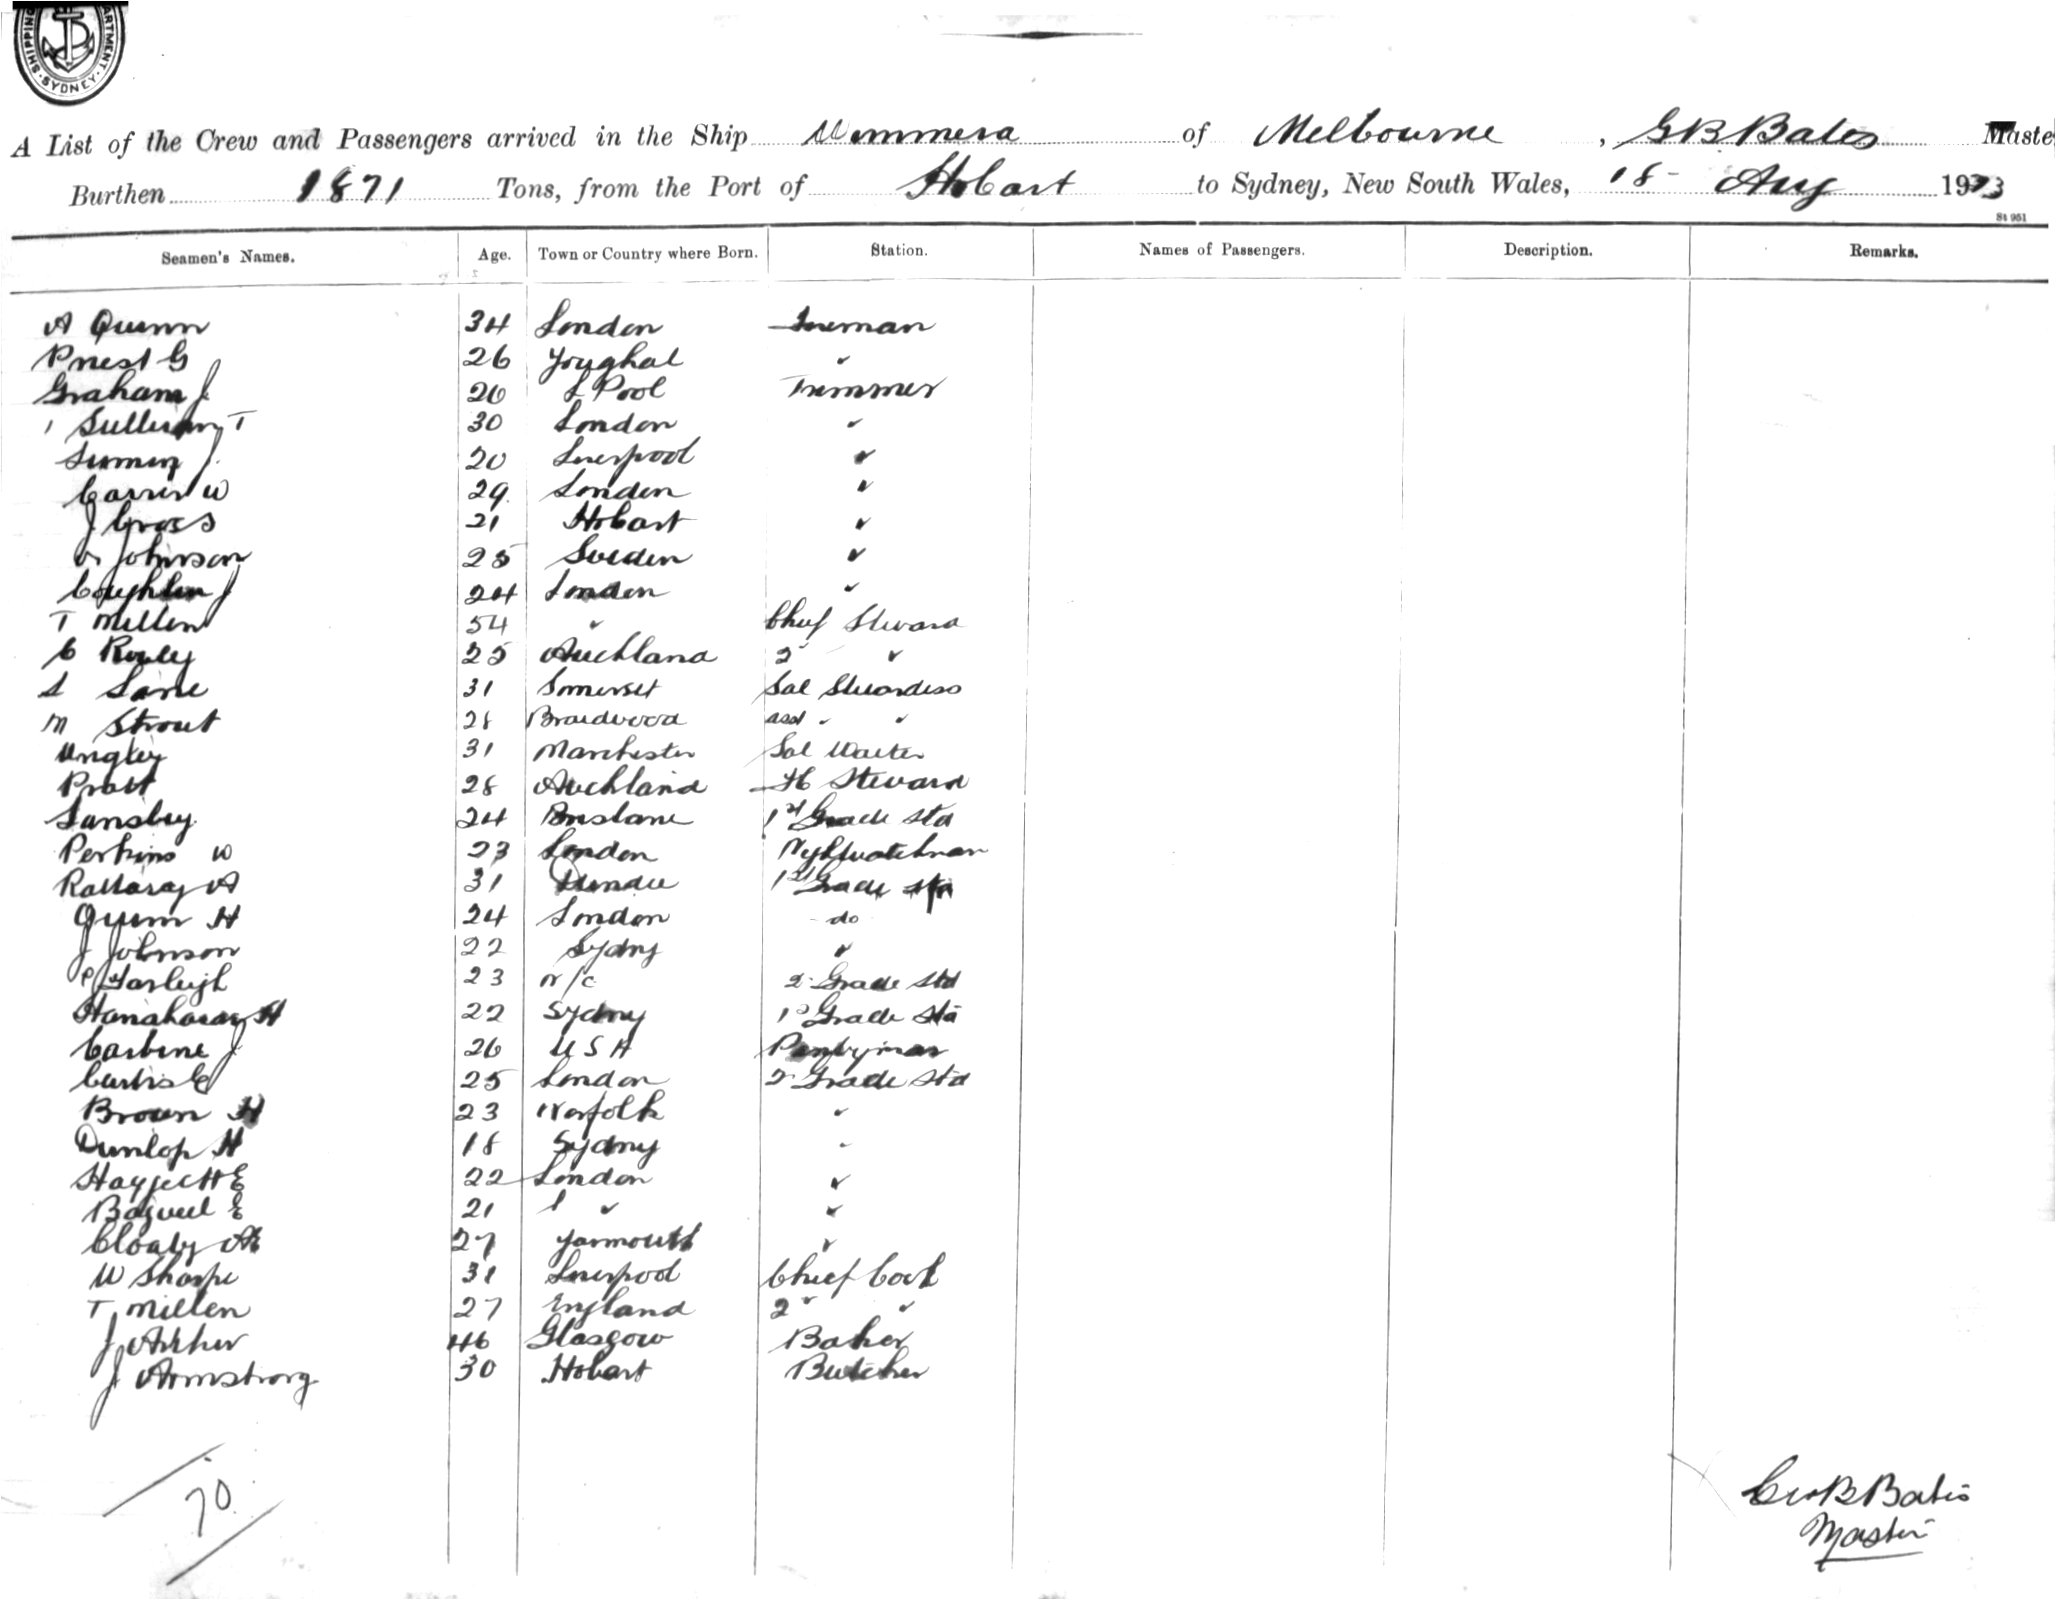 SHIPPING DEPARTMENT · SYDNEY ·
A List of the Crew and Passengers arrived in the Ship Wimmera of Melbourne, G B Bates Maste
Burthen 1871 Tons, from the Port of Hobart to Sydney, New South Wales, 18 - Aug 1913
St 951
Seamen's Names. Age. Town or Country where Born. Station. Names of Passengers. Description. Remarks.
A Quinn 34 London Fireman
Priest G 26 Youghal "
Graham J 26 L Pool Trimmer
Sullivan T 30 London "
J. 20 Liverpool "
Carrier W 29 London "
J Cross 21 Hobart "
Johnson 25 Sweden "
Coughlan J 24 London "
T Millen 54 " Chief Steward
C Rowley 25 Auckland 2 "
S Lane 31 Somerset Sal Stewardess
M Strout 28 Braidwood asst " "
Ungley 31 Manchester Sal Waiter
Pratt 28 Auckland Steward
Lansley 24 Brisbane 1st Grade Std
Perkins W 23 London Nightwatchman
Rattray A 31 Dundee 1st Grade Std
Quinn H 24 London do
J Johnson 22 Sydny "
P Farleigh 23 N/C 2 Grade Std
H 22 Sydny 1st Grade Std
Carbine J 26 U S A Pantryman
Curtis G 25 London 2 Grade Std
Brown H 23 Norfolk "
Dunlop H 18 Sydny "
22 London "
E 21 " "
27 Yarmouth "
W Sharpe 31 Liverpool Chief Cook
T Millen 27 England 2 " "
J Archer 46 Glasgow Baker
J Armstrong 30 Hobart Butcher
70
Geo B Bates
Master